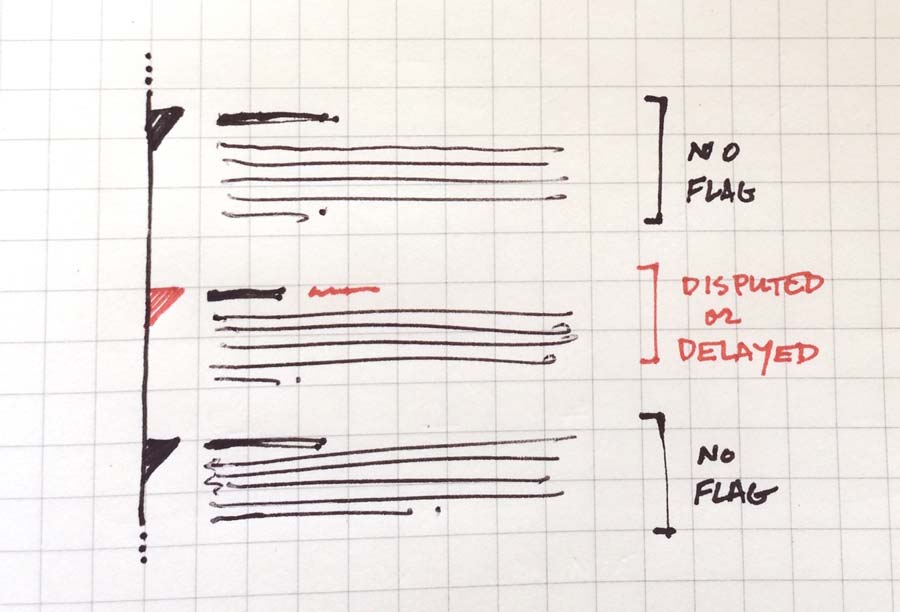 NO
FLAG
DISPUTED
OR
DELAYED
NO
FLAG